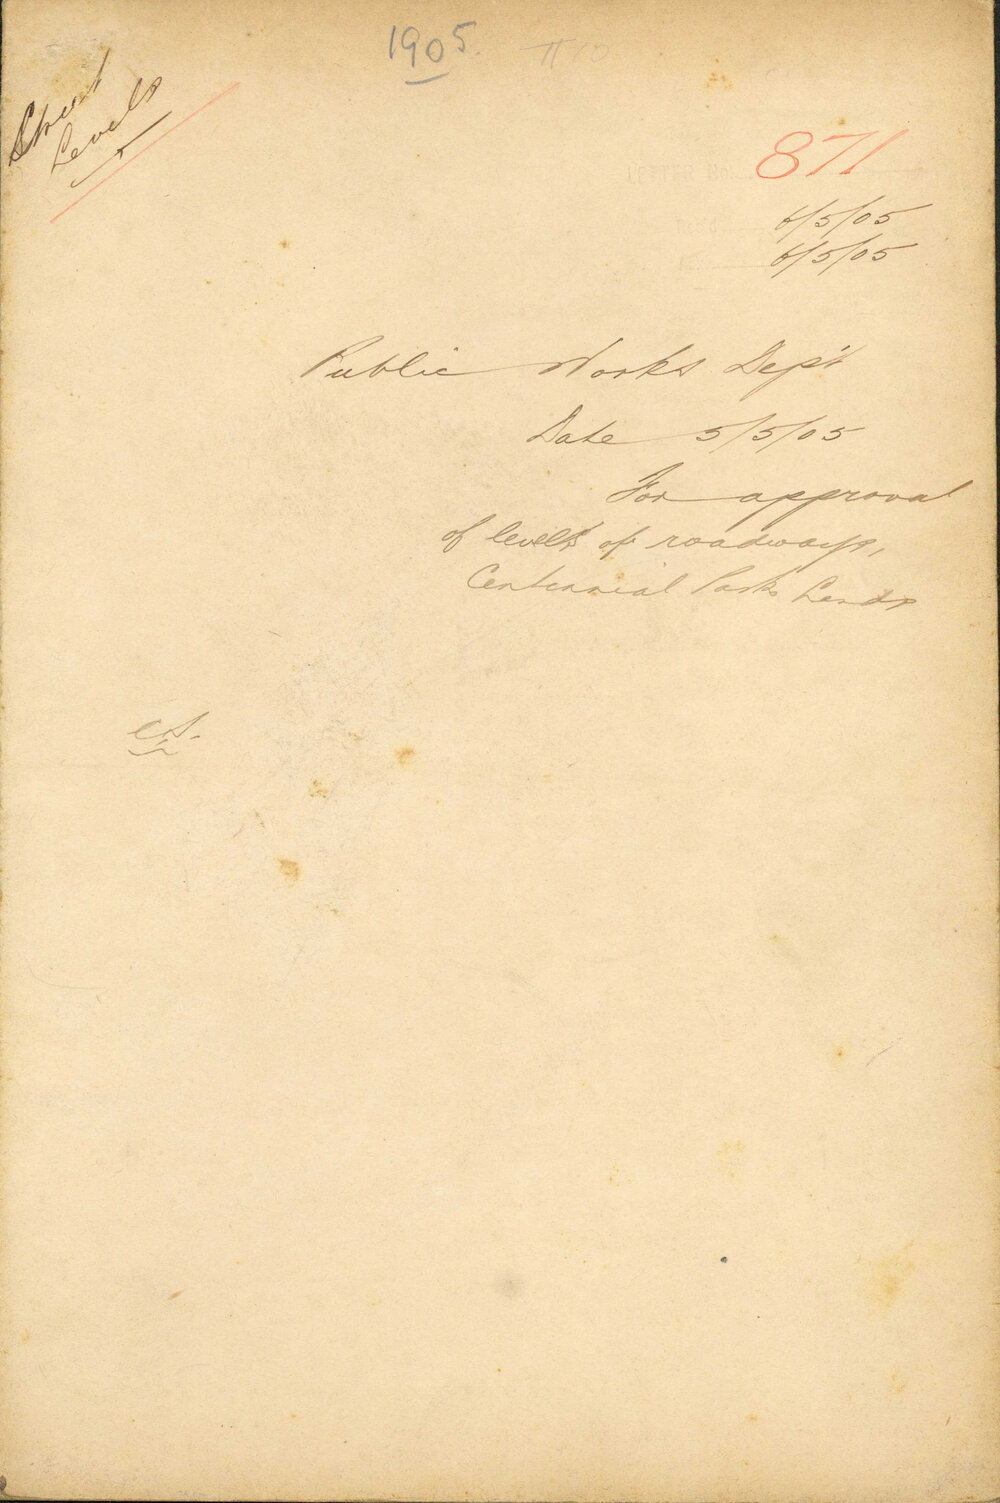 1905.
Street
Levels
871
6/5/05
6/5/05
Public Works Dep't
Date 5/5/05
For approval
of levels of roadways,
Centennial Parks Lands